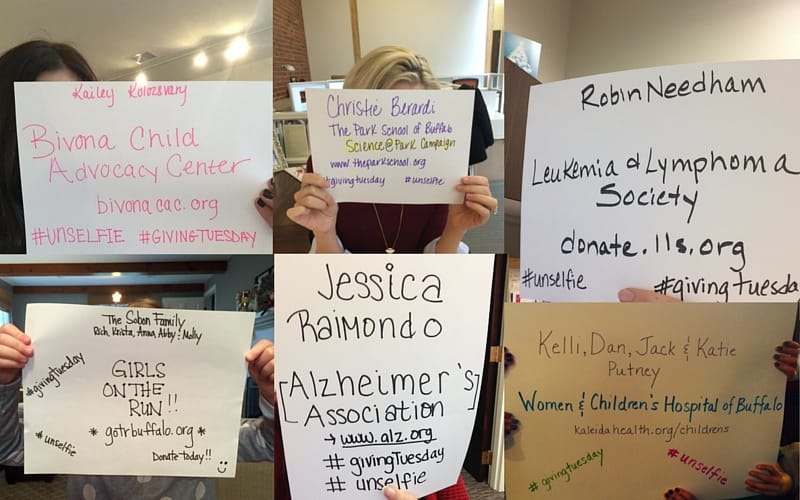 Kailey Kolozsvary
Bivona Child
Advocacy Center
bivonacac.org
#UNSELFIE #GIVINGTUESDAY
Christie Berardi
The Park School of Buffalo
Science@Park Campaign
www.theparkschool.org
#givingtuesday #unselfie
Robin Needham
Leukemia & Lymphoma
Society
donate.lls.org
#unselfie #givingTuesda
The Sobon Family
Rich, Krista, Anna, Abby & Molly
#givingtuesday
GIRLS
ON THE
RUN!!
* gotrbuffalo.org *
#unselfie
Donate today!!
Jessica
Raimondo
[Alzheimer's]
Association
→ www.alz.org
# givingTuesday
# unselfie
Kelli, Dan, Jack & Katie
Putney
Women & Children's Hospital of Buffalo
kaleidahealth.org/childrens
#givingtuesday #unselfie